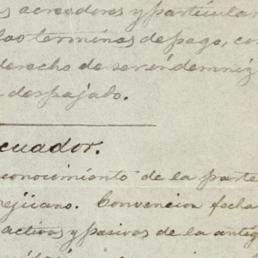 acreedores y particular
las terminos de pago, co
derecho de ser indemniz
despojado.
cuador.
conocimiento de la parte
Convencion fecha
activas y pasivas de la antig